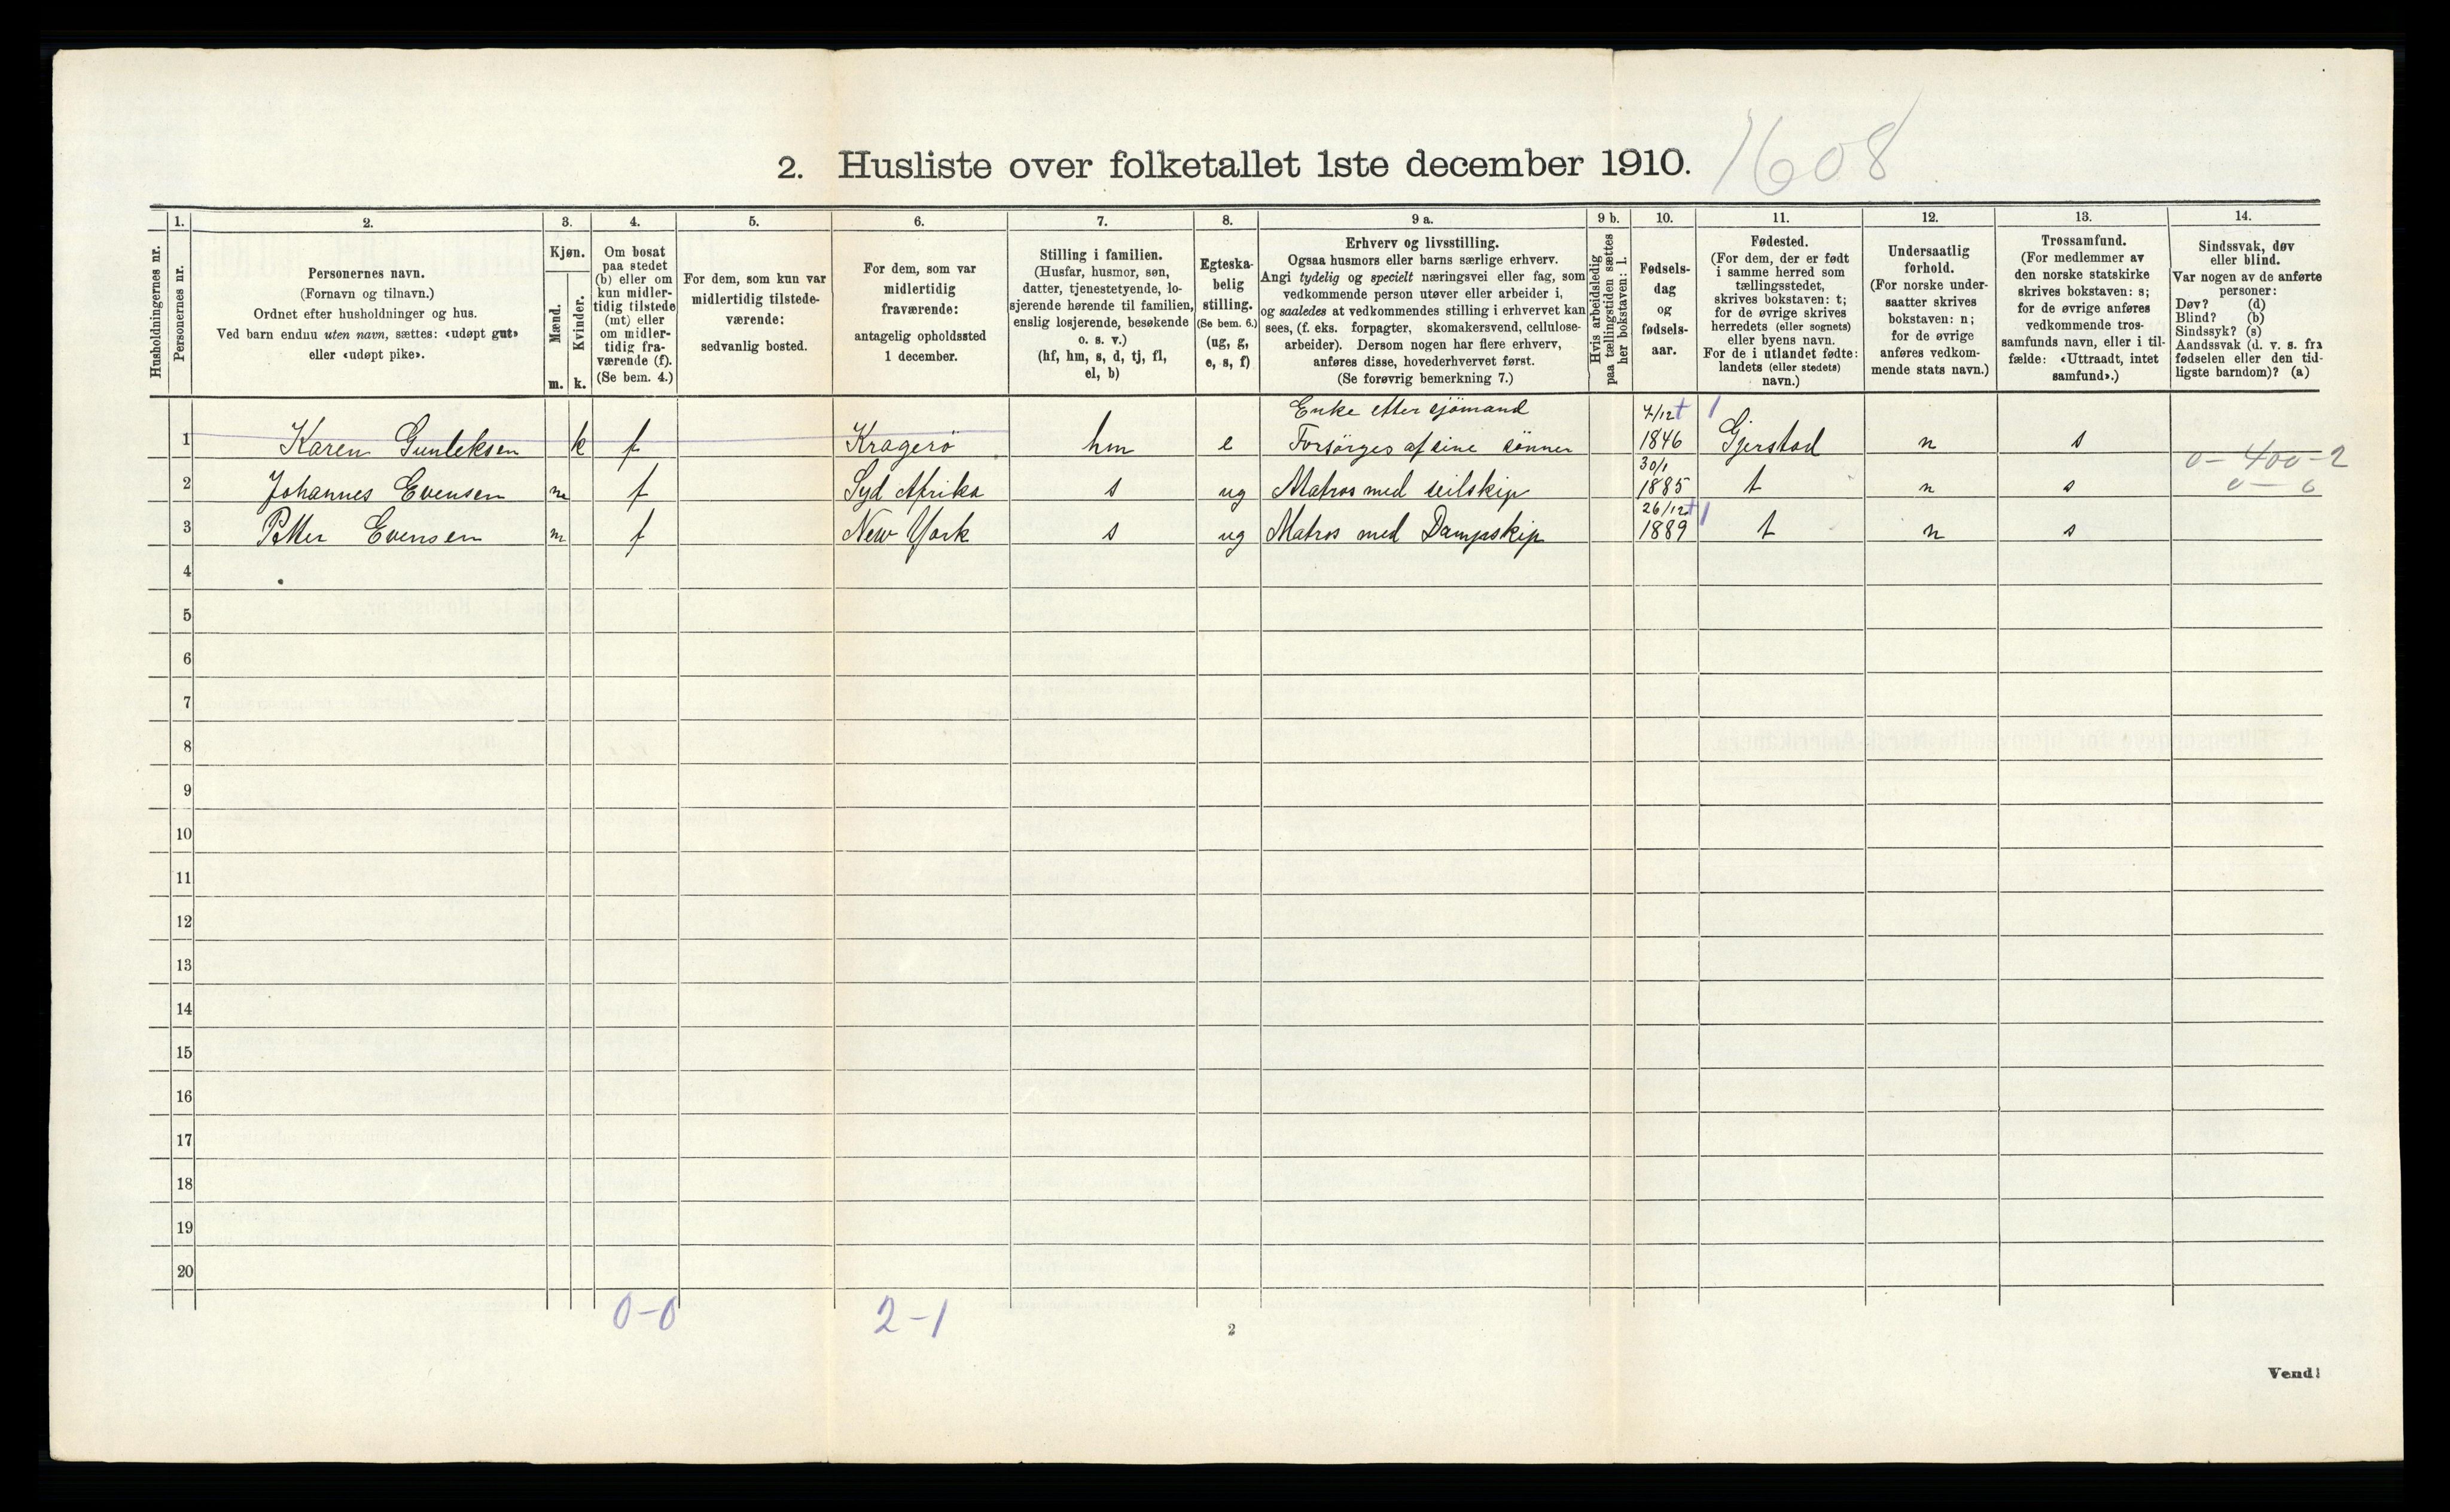 2. Husliste over folketallet 1ste december 1910. 1608
Husholdningernes nr.
1.
Personernes nr.
2.
Personernes navn.
(Fornavn og tilnavn.)
Ordnet efter husholdninger og hus.
Ved barn endnu uten navn, sættes: «udøpt gut»
eller «udøpt pike».
3.
Kjøn.
Mænd.
m.
Kvinder.
k.
4.
Om bosat
paa stedet
(b) eller om
kun midler-
tidig tilstede
(mt) eller
om midler-
tidig fra-
værende (f).
(Se bem. 4.)
5.
For dem, som kun var
midlertidig tilstede-
værende:
sedvanlig bosted.
6.
For dem, som var
midlertidig
fraværende:
antagelig opholdssted
1 december.
7.
Stilling i familien.
(Husfar, husmor, søn,
datter, tjenestetyende, lo-
sjerende hørende til familien,
enslig losjerende, besøkende
o. s. v.)
(hf, hm, s, d, tj, fl,
el, b)
8.
Egteska-
belig
stilling.
(Se bem. 6.)
(ug, g,
e, s, f)
9 a.
Erhverv og livsstilling.
Ogsaa husmors eller barns særlige erhverv.
Angi tydelig og specielt næringsvei eller fag, som
vedkommende person utøver eller arbeider i,
og saaledes at vedkommendes stilling i erhvervet kan
sees, (f. eks. forpagter, skomakersvend, cellulose-
arbeider). Dersom nogen har flere erhverv,
anføres disse, hovederhvervet først.
(Se forøvrig bemerkning 7.)
9 b.
Hvis arbeidsledig
paa tællingstiden sættes
her bokstaven: l.
10.
Fødsels-
dag
og
fødsels-
aar.
11.
Fødested.
(For dem, der er født
i samme herred som
tællingsstedet,
skrives bokstaven: t;
for de øvrige skrives
herredets (eller sognets)
eller byens navn.
For de i utlandet fødte:
landets (eller stedets)
navn.)
12.
Undersaatlig
forhold.
(For norske under-
saatter skrives
bokstaven: n;
for de øvrige
anføres vedkom-
mende stats navn.)
13.
Trossamfund.
(For medlemmer av
den norske statskirke
skrives bokstaven: s;
for de øvrige anføres
vedkommende tros-
samfunds navn, eller i til-
fælde: «Uttraadt, intet
samfund».)
14.
Sindssvak, døv
eller blind.
Var nogen av de anførte
personer:
Døv? (d)
Blind? (b)
Sindssyk? (s)
Aandssvak (d. v. s. fra
fødselen eller den tid-
ligste barndom)? (a)
Enke efter sjömand 7/12 + 1
1 Karen Gunleksen k f Kragerö hm e Forsörges af sine sönner 1846 Gjerstad n s
30/1 0 - 400 - 2
2 Johannes Evensen m f Syd Afrika s ug Matros med seilskip 1885 t n s 0 - 0
26/12 + 1
3 Petter Evensen m f New York s ug Matros med Dampskip 1889 t n s
4
5
6
7
8
9
10
11
12
13
14
15
16
17
18
19
20
0-0 2-1
2
Vend!